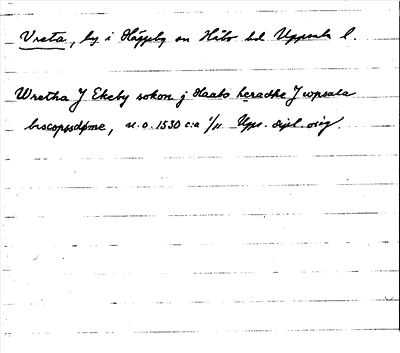 Vreta, by i Häggeby sn Håbo hd Uppsala l.
Wretha J Ekeby sokon j Haabo heradhe J vopsala
biscopsdøme, u.o. 1530 c:a 1/11 Ups. dipl. orig.